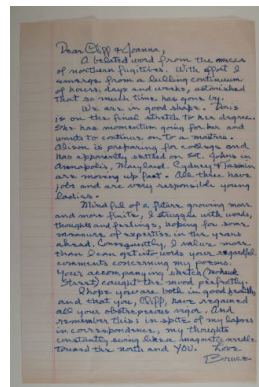 Dear Cliff & Joanna,
A belated word from the
of northern fugitives. With effort I
emerge from a lulling continuum
of hours, days and weeks, astonished
that so much time has gone by.
We are in good shape. Doris
is on the final stretch to her degree.
She has momentum going for her and
wants to continue on to a masters.
Alison is preparing for college and
has apparently settled on St. Johns in
Annapolis, Maryland. Cydney & Jasmin
are moving up fast. All three have
jobs and are very responsible young
ladies.
Mindful of a future growing more
and more finite, I struggle with words,
thoughts and feelings, hoping for some
measure of expertise in the years
ahead. Consequently, I value more
than I can put into words your
comments concerning my poems.
Your accompanying sketch (Mohawk
Street) caught the mood perfectly.
I hope you are both in good health,
and that you, Cliff, have regained
all your obstreperous vigor. And
remember this: in spite of my lapses
in correspondence, my thoughts
constantly swing like a magnetic needle
toward the north and YOU. Love
Bruce